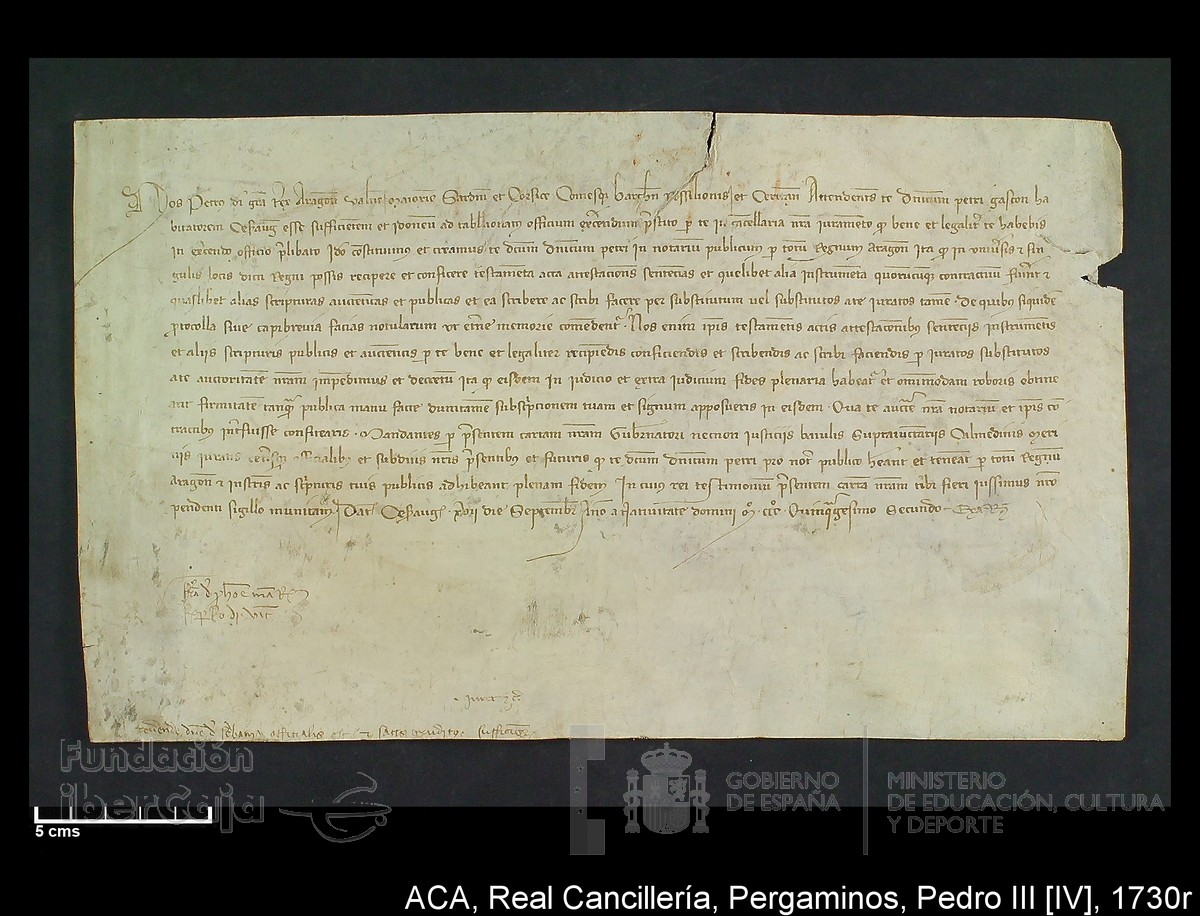 Nos Petrus di gra Rex Aragon Valen Maioric Sardin et Corsice Comesq Barchn Rossilionis et Ceritan Attendentes te Dnicum petri gaston ha
bitatorem Cesaraug esse sufficientem et ydoneum ad tabellionatus officium exercendum prestito p te in Cancellaria nra iuramento q bene et legalit te habebis
in exercendo officio prelibato Ido constituimus et creamus te dcum dnicum petri in notarium publicum p totum Regnum Aragon ita q in univsis et sin
gulis locis dicti Regni possis recipere et conficere testamenta acta attestaciones sentencias et quelibet alia instrumenta quorumcumq contractuum fuerint et
quaslibet alias scripturas auctenticas et publicas et ea scribere ac scribi facere per substitutum vel substitutos a te iuratos tamen De quibus siquidem
prothocolla sive capibrevia facias notularum ut eterne memorie comendent Nos enim ipsis testamentis actis attestacionibus sentenciis instrumentis
et aliis scripturis publicis et autenticis p te bene et legaliter recipiendis conficiendis et scribendis ac scribi faciendis p iuratos substitutos
a te auctoritatem nram impendimus et decretum ita q eisdem in iudicio et extra iudicium fides plenaria habeat et omnimodam roboris obtine
ant firmitatem tanq publica manu facte dumtamen subscripcionem tuam et signum apposueris in eisdem Qua te aucte nra notarium et ipsis con
tractibus interfuisse confitearis Mandantes p presentem cartam nram Gubernatori necnon iusticiis baiulis Suprajunctariis Calmedinis Meri
nis iuratis ceterisq officialibus et subditis nris presentibus et futuris q te dcum dnicum petri pro not publico habeant et teneant p totum Regnum
Aragon et instris ac scripturis tuis publicis adhibeant plenam fidem In cuius rei testimonium presentem cartam nram tibi fieri iussimus nro
pendenti sigillo munitam Dat Cesaraug die Septembr Anno a Nativitate domini M CCC Quinquagesimo Secundo Exa R
5 cms
Fundación
iberCaja
GOBIERNO
DE ESPAÑA
MINISTERIO
DE EDUCACIÓN, CULTURA
Y DEPORTE
ACA, Real Cancillería, Pergaminos, Pedro III [IV], 1730r